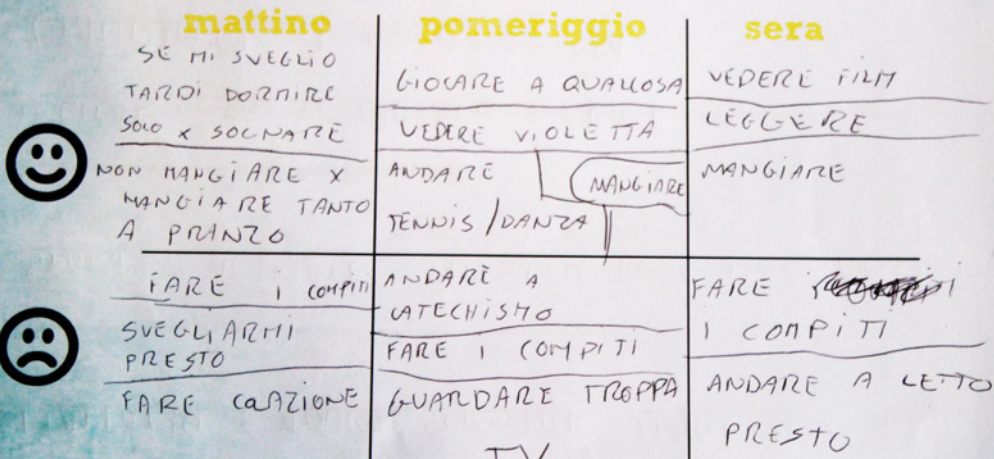 mattino
pomeriggio
sera
SE MI SVEGLIO
TARDI DORMIRE
SOLO X SOGNARE
NON MANGIARE X
MANGIARE TANTO
A PRANZO
GIOCARE A QUALCOSA
VEDERE VIOLETTA
ANDARE
TENNIS / DANZA
MANGIARE
VEDERE FILM
LEGGERE
MANGIARE
FARE I COMPITI
SVEGLIARMI
PRESTO
FARE COLAZIONE
ANDARE A
CATECHISMO
FARE I COMPITI
GUARDARE TROPPA
TV
FARE
I COMPITI
ANDARE A LETTO
PRESTO